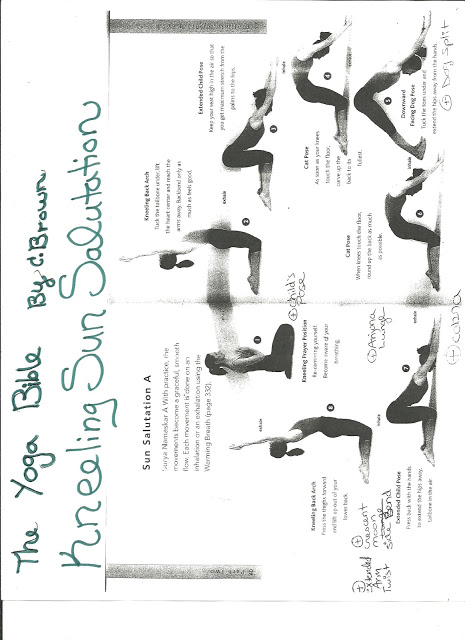 The Yoga Bible By C. Brown
Kneeling Sun Salutation
Sun Salutation A
Surya Nameskar A With practice, the
movements become a graceful, smooth
flow. Each movement is done on an
inhalation or an exhalation using the
Warming Breath (page 332).
1
Kneeling Prayer Position
Become aware of your
breathing.
+ Child's
Pose
inhale
2
Kneeling Back Arch
Tuck the tailbone under, lift
the heart center and reach the
arms away. Backbend only as
much as feels good.
exhale
3
Extended Child Pose
Keep your seat high in the air so that
you get maximum stretch from the
palms to the hips.
inhale
4
Cat Pose
As soon as your knees
touch the floor,
curve up the
back to its
fullest.
exhale
5
Downward
Facing Dog Pose
Tuck the toes under and
extend the hips away from the hands.
+ Dog Split
inhale
6
Cat Pose
When knees touch the floor,
round up the back as much
as possible.
+ Cobra
exhale
7
Extended Child Pose
Press back with the hands
to extend the hips away,
tailbone in the air.
+ Anjana
Lunge
inhale
8
Kneeling Back Arch
Press the thighs forward
and lift up out of your
lower back.
+ Crescent
moon
side Bend
+ Extended
Arm
Twist